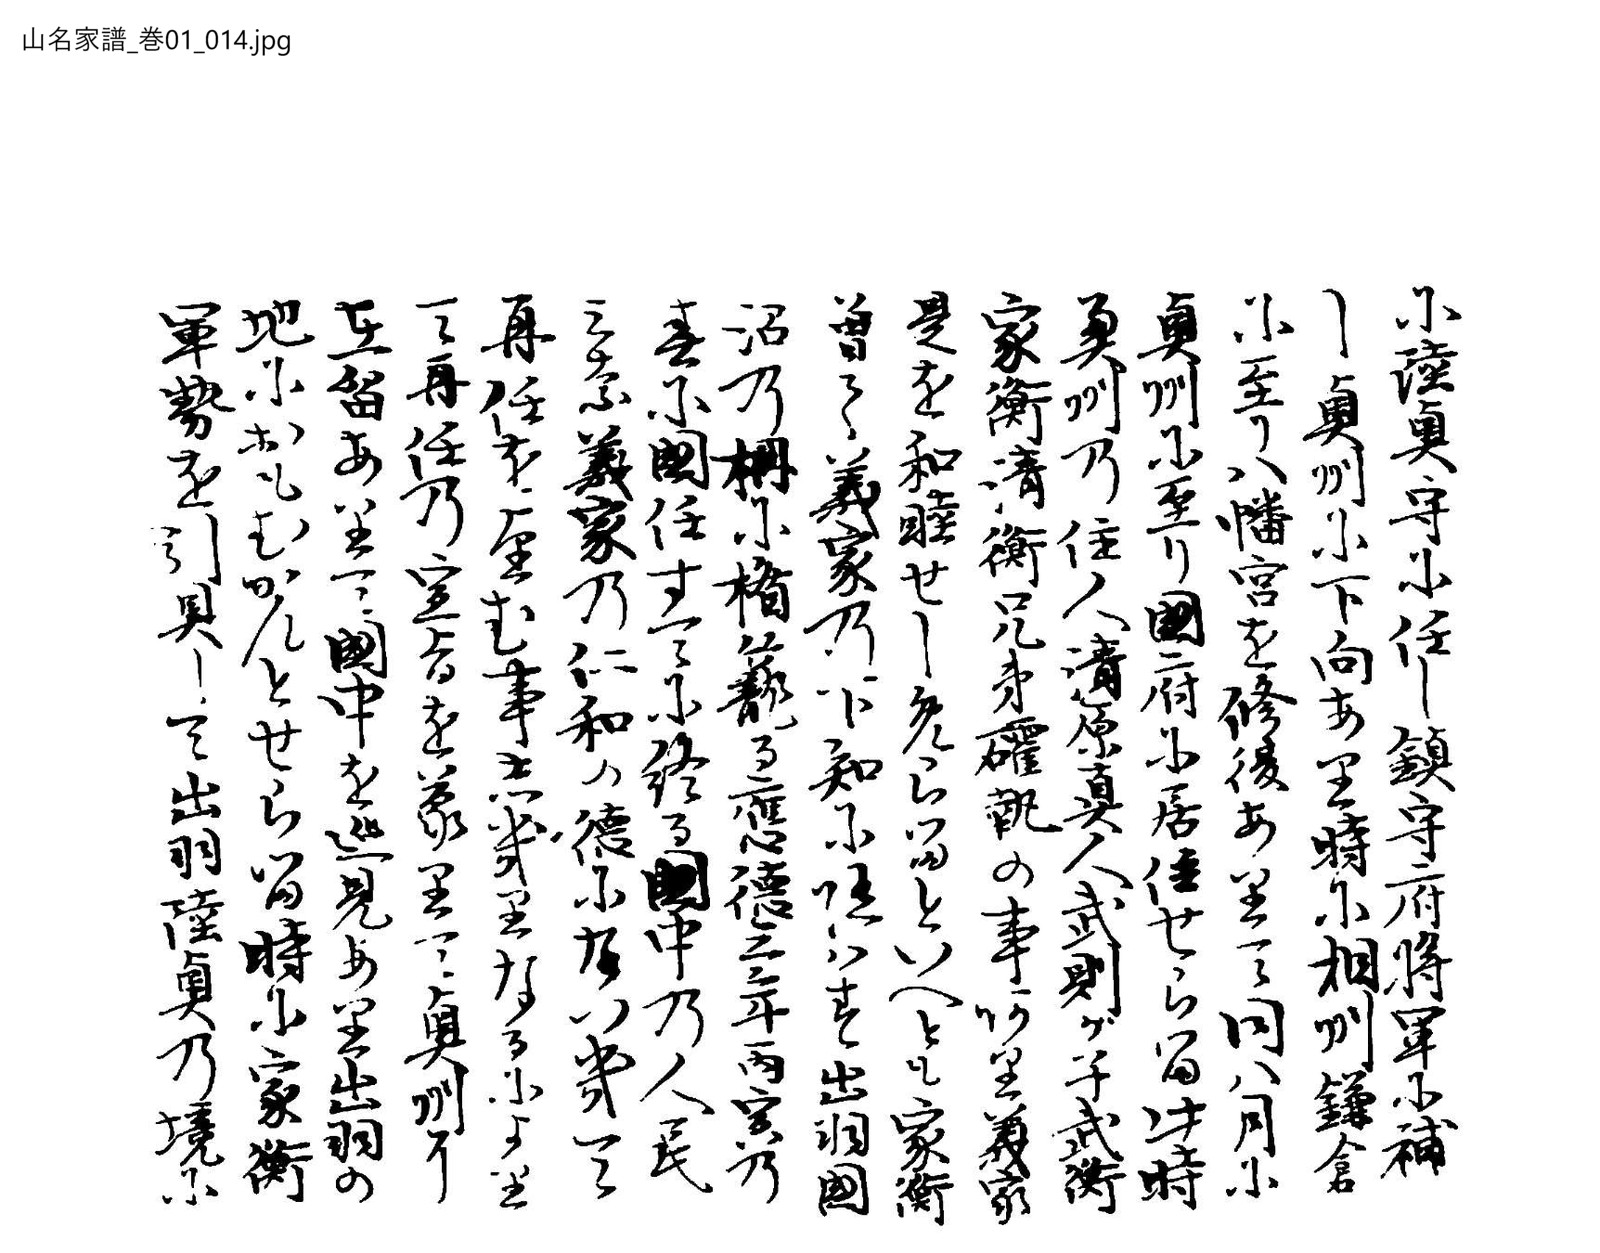 山名家譜_巻01_014.jpg
小陸奥守小任し鎮守府将軍小補
し奥州小下向あり時小相州鎌倉
小至り八幡宮を修復ありて同八月小
奥州小至り國府小居住せらる此時
奥州乃住人清原真人武則が子武衡
家衡清衡兄弟確執の事ありしに義家
是を和睦せしめらるといへとも家衡
曽て義家乃下知小随はす出羽國
沼乃柵小楯籠る應徳三年丙寅乃
春小國任すてに終る國中乃人民
みな義家乃仁和の徳小なつきて
再任を望む事しきりなるによりて
て再任乃宣旨を蒙りて奥州に
在留ありて國中を巡見あり出羽の
地小おもむかんとせらる時小家衡
軍勢を引具して出羽陸奥乃境小